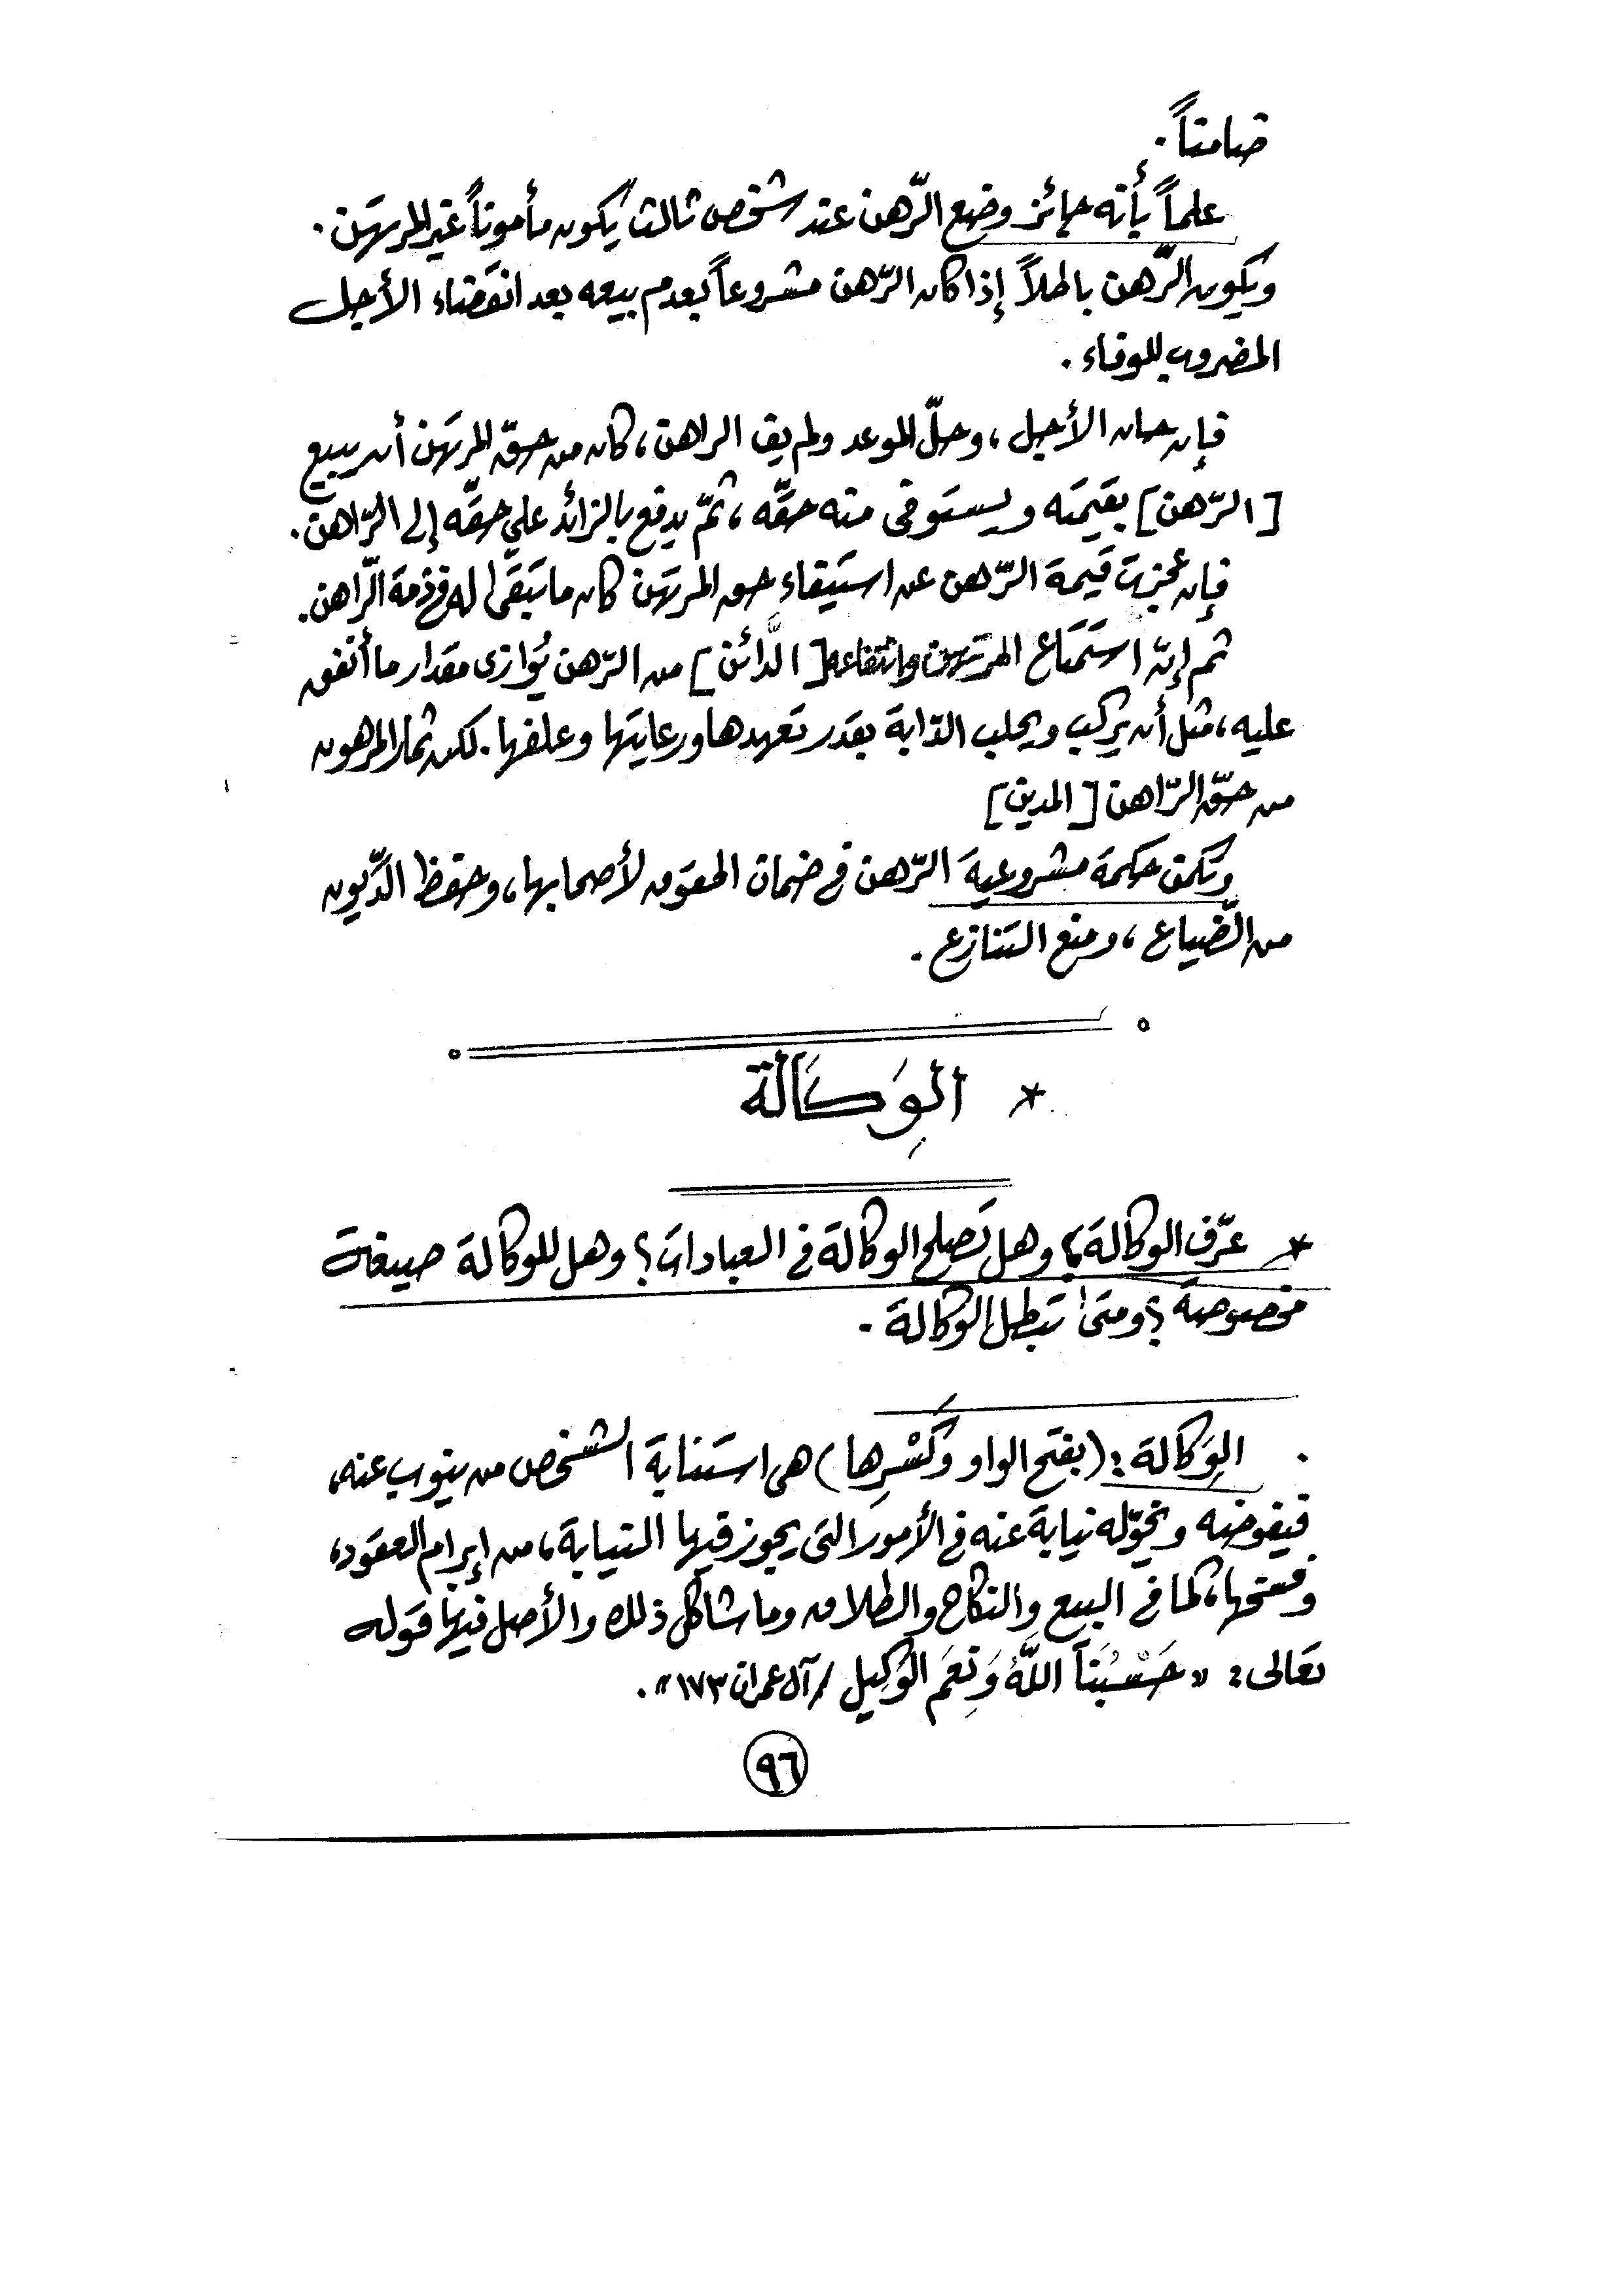 ضامناً.
علماً بأنه جائز وضع الرّهن عند شخص ثالث يكون مأموناً غير المرتهن.
ويكون الرّهن باطلاً إذا كان الرّهن مشروعاً بعدم بيعه بعد انقضاء الأجل
المضروب للوفاء.
فإن حان الأجل، وحلّ الموعد ولم يف الراهن، كان من حقّ المرتهن أن يبيع
[الرّهن] بقيمته ويستوفي منه حقّه، ثمّ يدفع بالزائد على حقّه إلى الرّاهن.
فإن عجزت قيمة الرّهن عن استيفاء حق المرتهن كان ما تبقى له في ذمة الرّاهن.
ثم إنّ استمتاع المرتهن وانتفاعه [الدّائن] من الرّهن يُوازي مقدار ما أنفق
عليه، مثل أن يركب ويحلب الدّابة بقدر تعهدها ورعايتها وعلفها. لكن ثمار المرهون
من حقّ الرّاهن [المدين]
وتكمن حكمة مشروعية الرّهن في ضمان الحقوق لأصحابها، وحفظ الدّيون
من الضّياع، ومنع التنازع.
* الوِكَالَة
* عرّف الوكالة؟ وهل تصلح الوكالة في العبادات؟ وهل للوكالة صيغة
مخصوصة؟ ومتى تبطل الوكالة.
. الوِكَالة: (بفتح الواو وكَسْرِها) هي استنابة الشخص من ينوب عنه،
فيفوضه ويخوّله نيابة عنه في الأمور التي يجوز فيها النيابة، من إبرام العقود،
وفسخها، كما في البيع والنكاح والطلاق وما شاكل ذلك والأصل فيها قوله
تعالى: « حَسْبُنَا اللَّهُ وَنِعْمَ الوَكِيل / آل عمران ١٧٣ ».
٩٦